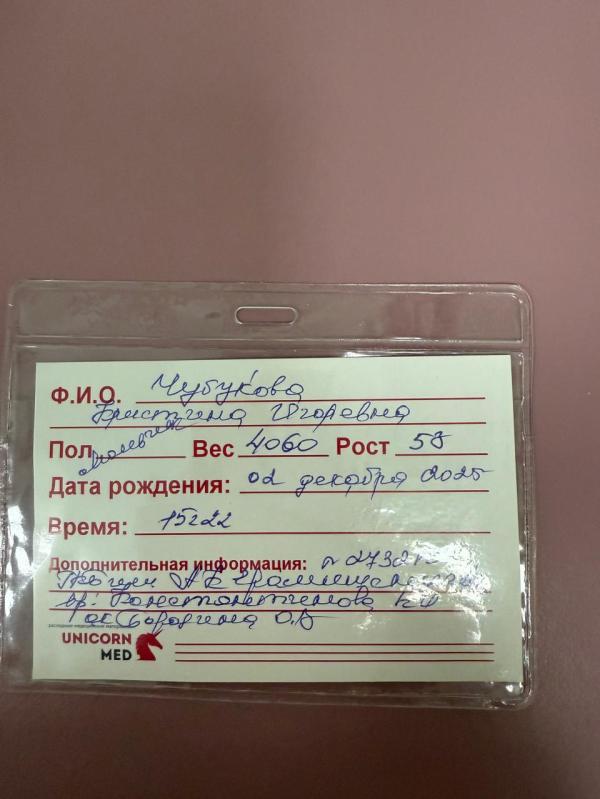 Ф.И.О. Чубукова
Кристина Игоревна
Пол мальчик Вес 4060 Рост 58
Дата рождения: 02 декабря 2025
Время: 15ч22
Дополнительная информация: n 2732
вр. Константинова
ак Бородина О.В
UNICORN
MED